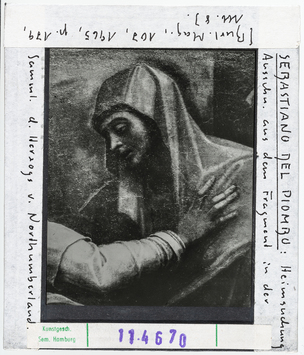 [Burl. Mag., 107, 1965, p. 179,
Nr. 8]
SEBASTIANO DEL PIOMBO: Heimsuchung
Ausschn. aus dem Fragment in der
Samml. d. Herzogs v. Northumberland.
Kunstgesch.
Sem. Hamburg
114670